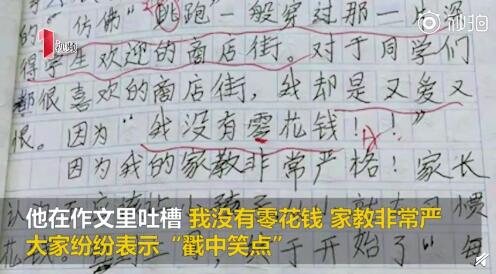 秒拍
1视频
的“仿佛”跳跑一般穿过那一片深
得学生欢迎的商店街。对于同学们
都很喜欢的商店街，我却是又爱又
恨。因为“我没有零花钱！！”
因为我的家教非常严格！家长
惯
他在作文里吐槽 我没有零花钱 家教非常严
大家纷纷表示“戳中笑点”
于开始了“每